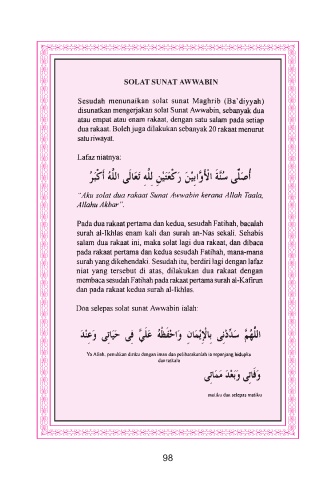 SOLAT SUNAT AWWABIN
Sesudah menunaikan solat sunat Maghrib (Ba'diyyah)
disunatkan mengerjakan solat Sunat Awwabin, sebanyak dua
atau empat atau enam rakaat, dengan satu salam pada setiap
dua rakaat. Boleh juga dilakukan sebanyak 20 rakaat menurut
satu riwayat.
Lafaz niatnya:
أُصَلِّى سُنَّةَ الْأَوَّابِيْنَ رَكْعَتَيْنِ لِلَّهِ تَعَالَى اللَّهُ أَكْبَرُ
"Aku solat dua rakaat Sunat Awwabin kerana Allah Taala,
Allahu Akbar".
Pada dua rakaat pertama dan kedua, sesudah Fatihah, bacalah
surah al-Ikhlas enam kali dan surah an-Nas sekali. Sehabis
salam dua rakaat ini, maka solat lagi dua rakaat, dan dibaca
pada rakaat pertama dan kedua sesudah Fatihah, mana-mana
surah yang dikehendaki. Sesudah itu, berdiri lagi dengan lafaz
niat yang tersebut di atas, dilakukan dua rakaat dengan
membaca sesudah Fatihah pada rakaat pertama surah al-Kafirun
dan pada rakaat kedua surah al-Ikhlas.
Doa selepas solat sunat Awwabin ialah:
اللَّهُمَّ سَدِّدْنِى بِالْإِيْمَانِ وَاحْفَظْهُ عَلَيَّ فِى حَيَاتِى وَعِنْدَ
Ya Allah, penuhkan diriku dengan iman dan peliharakanlah ia sepanjang hidupku
dan tatkala
وَفَاتِى وَبَعْدَ مَمَاتِى
matiku dan selepas matiku
98